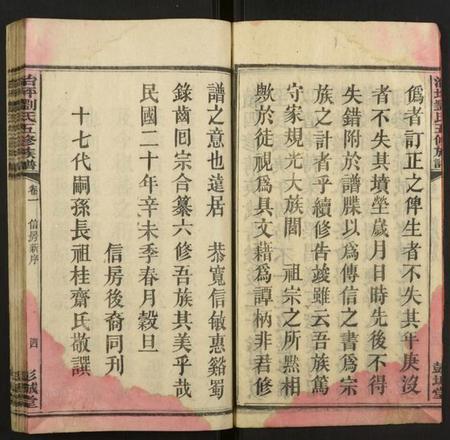 僞者訂正之俾生者不失其年庚沒
者不失其墳塋歲月日時先後不得
失錯附於譜牒以爲傳信之書爲宗
族之計者乎續修告竣雖云吾族篤
守家規光大族閭 祖宗之所黙相
歟於徒視爲具文藉爲譚柄非君修
治坪劉氏五修族譜
卷一
信房新序
四
彭城堂
譜之意也遠居 恭寬信敏惠谿蜀
錄齒囘宗合纂六修吾族其美乎哉
民國二十年辛未季春月穀旦
信房後裔同刊
十七代嗣孫長祖桂齋氏敬譔